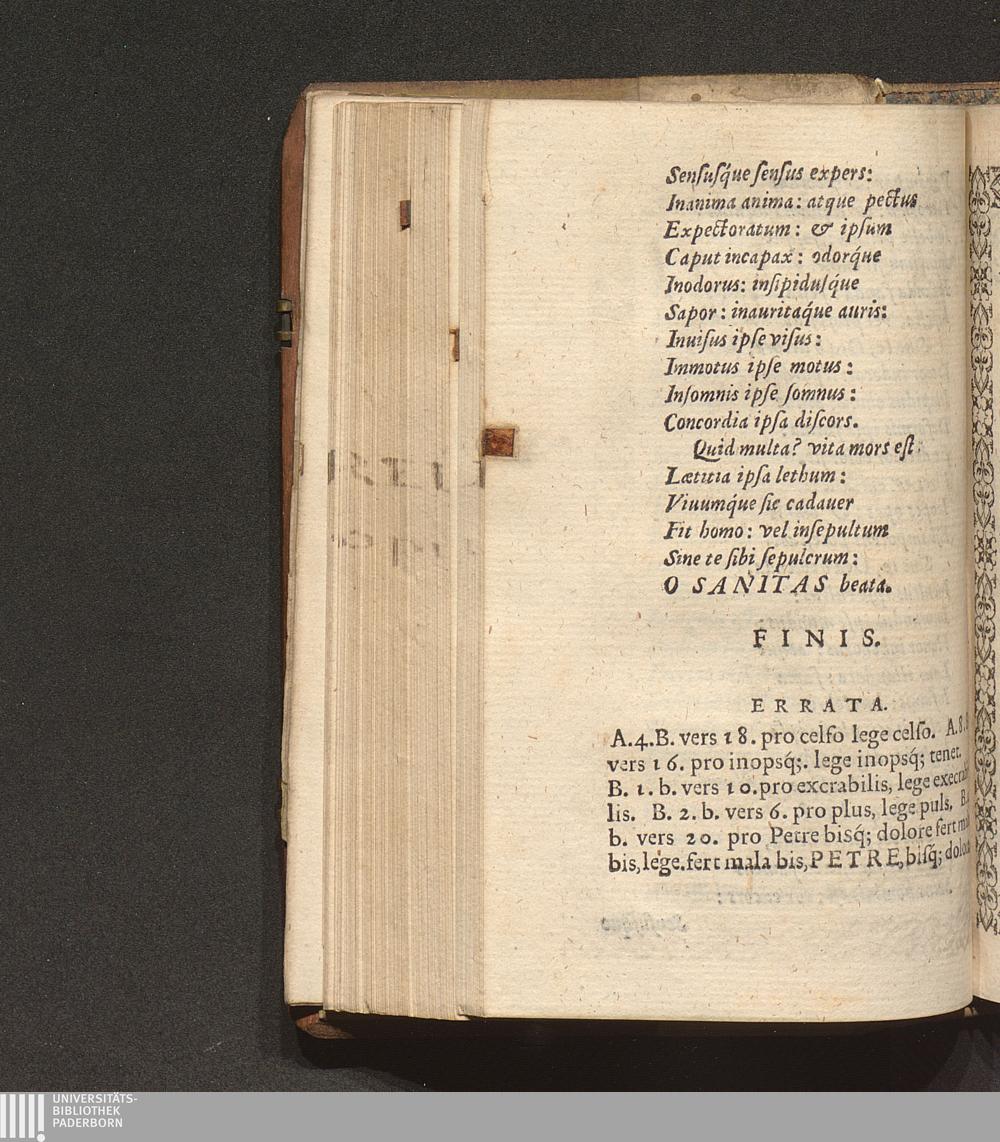 Senſuſq́ue ſenſus expers:
Inanima anima: atque pectus
Expectoratum: & ipſum
Caput incapax: odorq́ue
Inodorus: inſipiduſq́ue
Sapor: inauritaq́ue auris:
Inuiſus ipſe viſus:
Immotus ipſe motus:
Inſomnis ipſe ſomnus:
Concordia ipſa diſcors.
Quid multa? vita mors eſt.
Lætitia ipſa lethum:
Viuumq́ue ſic cadauer
Fit homo: vel inſepultum
Sine te ſibi ſepulcrum:
O SANITAS beata.
FINIS.
ERRATA.
A.4.B. vers 18. pro celfo lege celſo. A.8.
vers 16. pro inopsq́;. lege inopsq́; tenet.
B. 1. b. vers 10. pro excrabilis, lege execra
lis. B. 2. b. vers 6. pro plus, lege puls. B.
b. vers 20. pro Petre bisq́; dolore fert
bis, lege. fert mala bis, PETRE, biſq́;
UNIVERSITÄTS-
BIBLIOTHEK
PADERBORN